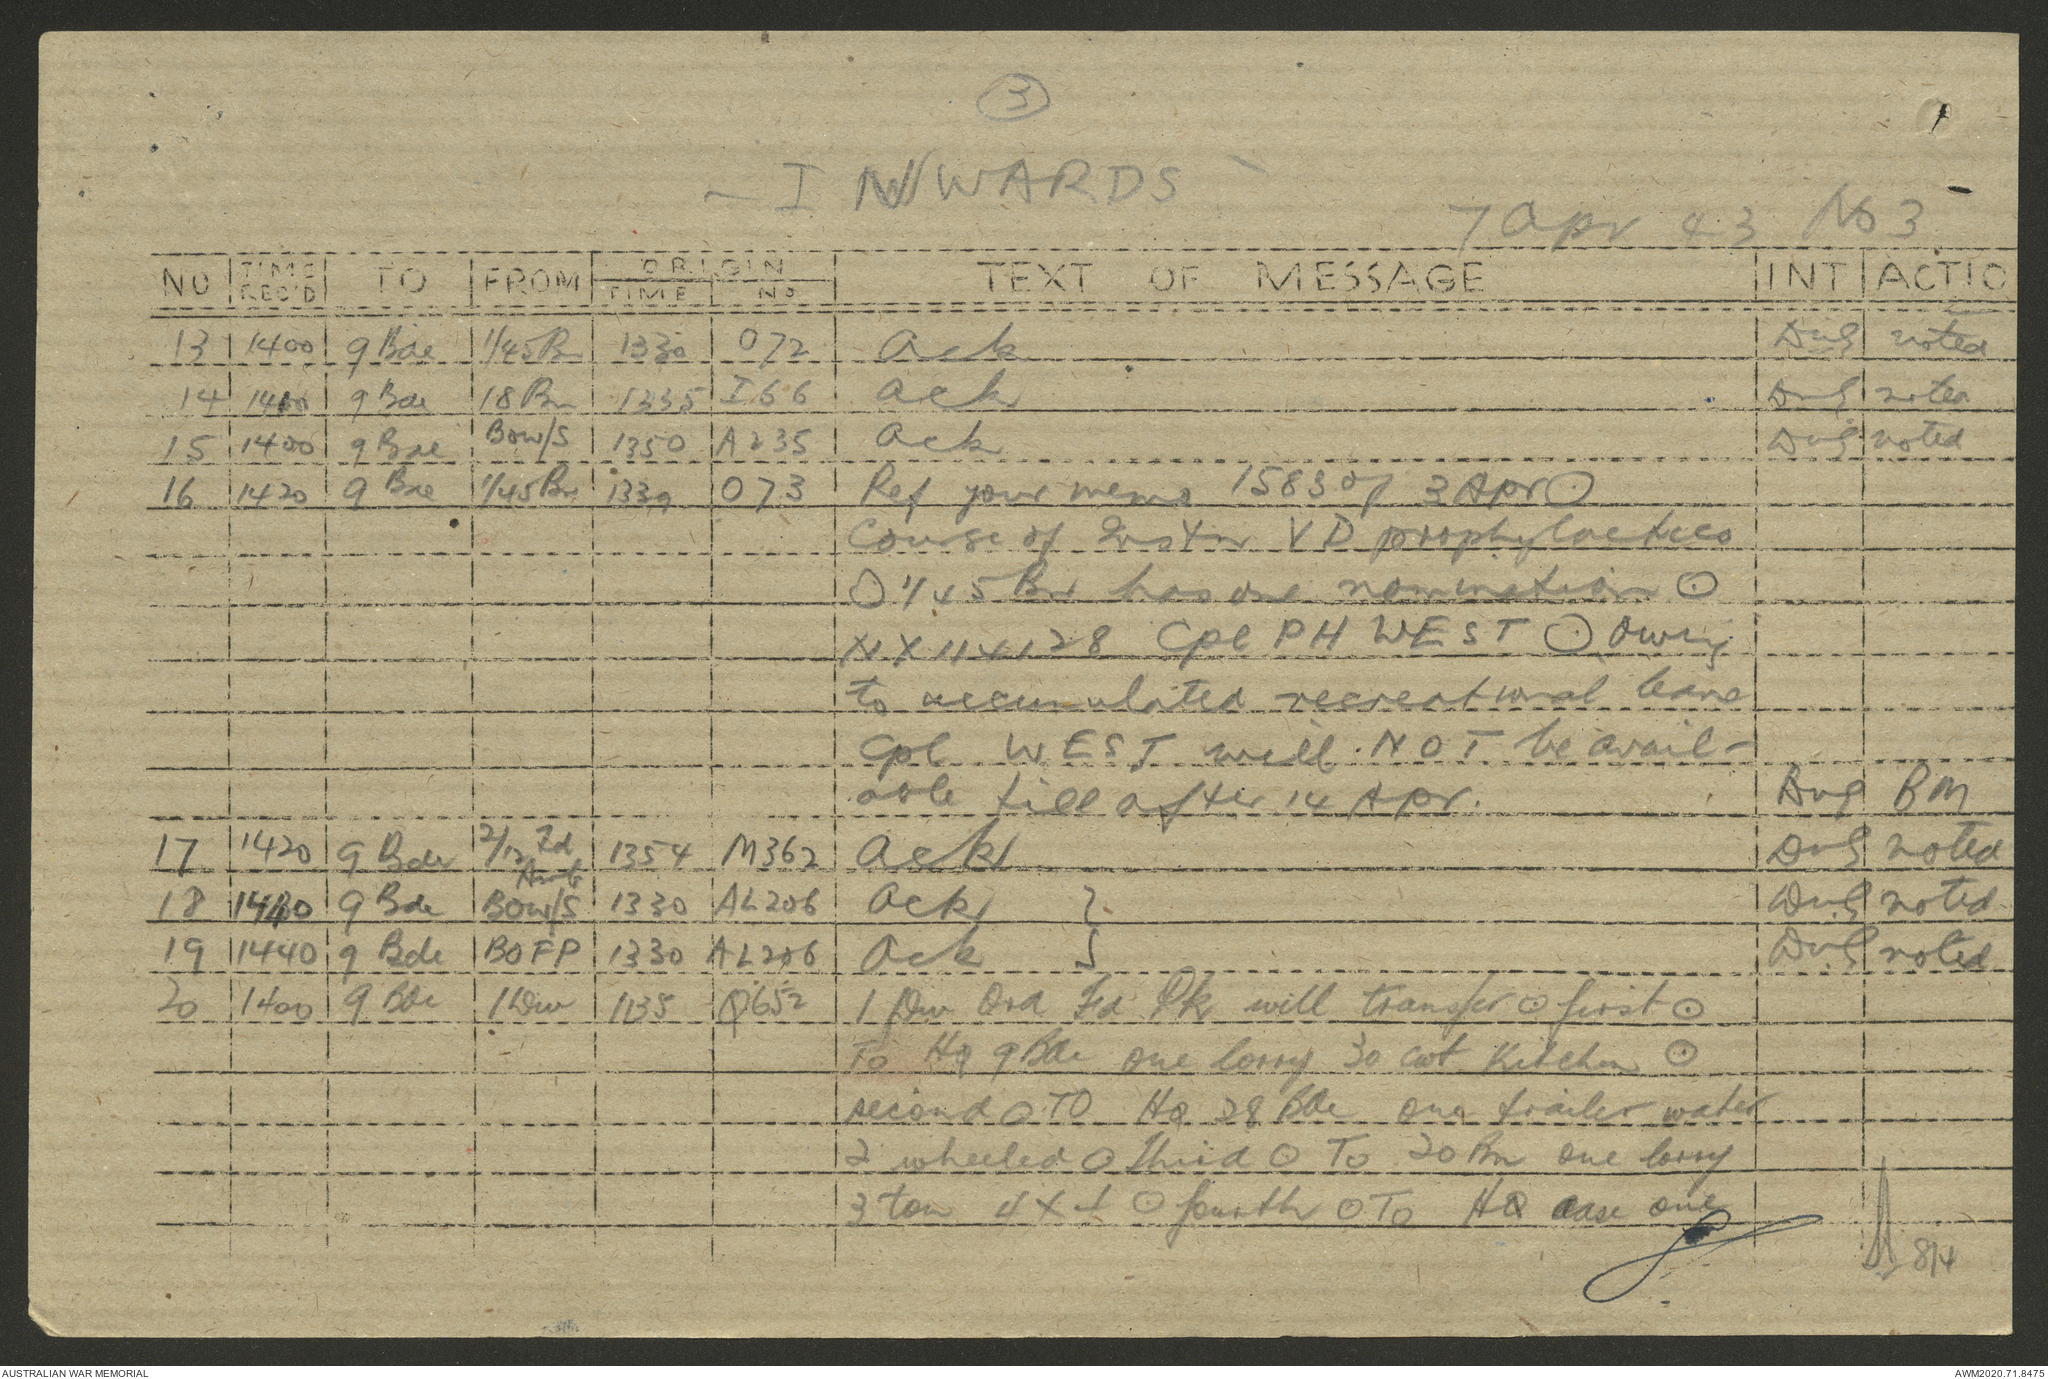 3
- INWARDS -
7 Apr 43 No 3
NO TIME REC'D TO FROM ORIGIN TIME No. TEXT OF MESSAGE INT ACTIO
13 1400 9 Bde 1/45 Bn 1330 O72 Ack noted
14 1400 9 Bde 18 Bn 1335 I66 Ack noted
15 1400 9 Bde BOW/S 1350 A235 Ack noted
16 1420 9 Bde 1/45 Bn 1339 O73 Ref your memo 1583 of 3 Apr ⊙
Course of Instn VD prophylactics
⊙ 1/45 Bn has one nomination ⊙
NX114128 Cpl PH WEST ⊙ Owing
to accumulated recreational leave
Cpl WEST will NOT be avail-
able till after 14 Apr. BM
17 1420 9 Bde 2/12 Fd Amb 1354 M362 Ack noted
18 9 Bde BOW/S 1330 AL206 Ack } noted
19 1440 9 Bde BOFP 1330 AL206 Ack } noted
20 1400 9 Bde 1 Div 1135 Q652 1 Div Ord Fd Pk will transfer ⊙ first ⊙
To HQ 9 Bde one lorry 30 cwt Kitchen ⊙
second ⊙ TO HQ 28 Bde one trailer water
2 wheeled ⊙ third ⊙ To 20 Bn one lorry
3 ton 4 x 4 ⊙ fourth ⊙ To HQ aasc one
8/4
AUSTRALIAN WAR MEMORIAL
AWM2020.71.8475